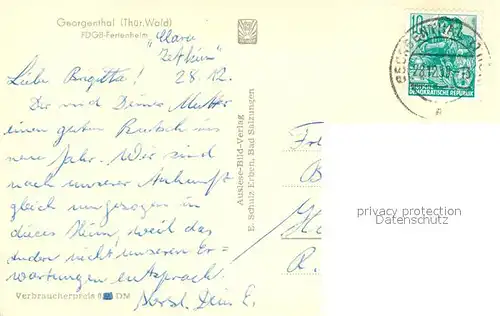 Georgenthal (Thür. Wald)
FDGB-Ferienheim „Clara
Zetkin"
Liebe Brigitta! 28.12.
Dir und Deiner Mutter
einen guten Rutsch ins
neue Jahr. Wir sind
nach unserer Ankunft
gleich umgezogen in
dieses Heim, weil das
andere nicht unseren Er-
wartungen entsprach.
Herzl. Dein E.
Verbraucherpreis DM
Auslese-Bild-Verlag
E. Schulz Erben, Bad Salzungen
10
DEMOKRATISCHE REPUBLIK
privacy protection
Datenschutz